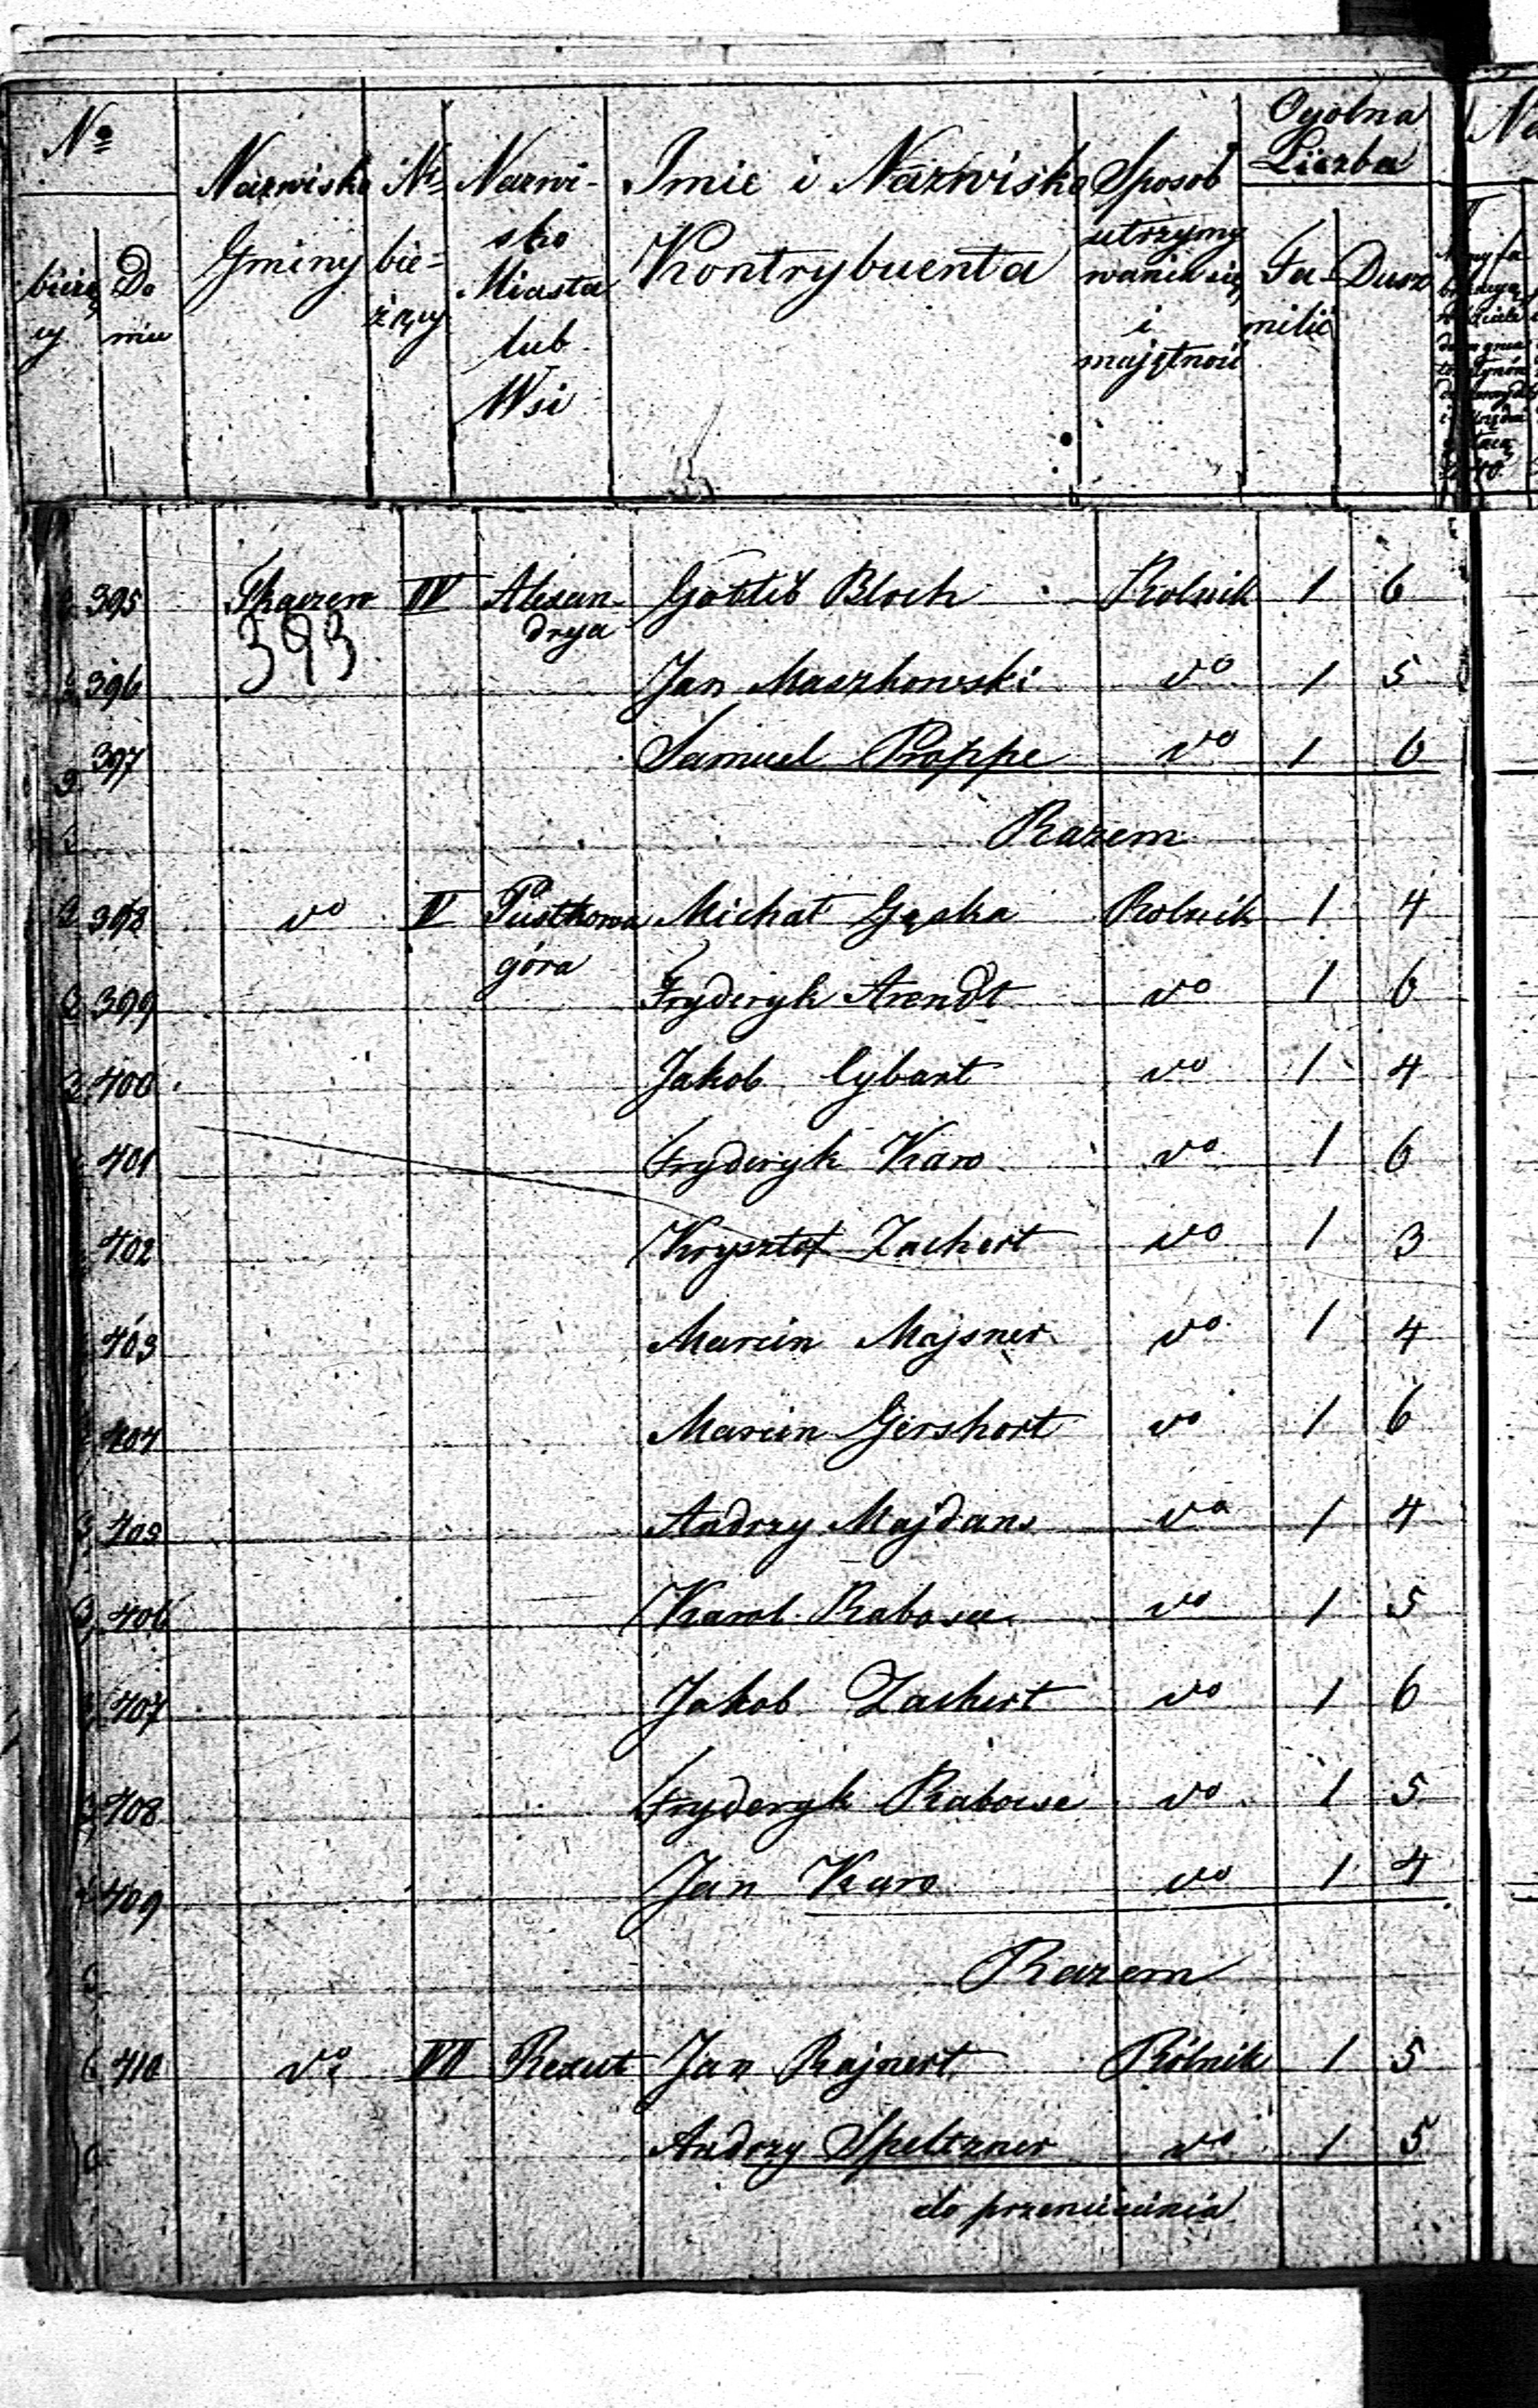 No
bieżą
cy
Do
mu
Nazwisko
Gminy
No
bie-
żący
Nazwi-
sko
Miasta
lub
Wsi
Imie i Nazwisko
Kontrybuenta
Sposob
utrzymy
wania się
i
majętność
Ogolna
Liczba
Fa-
milii
Dusz
395 Tkaczew IV Alexan- Gottlib Bloch Rolnik 1 6
drya
393
396 Jan Maszkowski do 1 5
397 Samuel Poppe do 1 6
Razem
398 do V Pustkowa Michał Gąska Rolnik 1 4
góra
399 Fryderyk Arendt do 1 6
400 Jakob Cybart do 1 4
401 Fryderyk Karo do 1 6
402 Krysztof Zachert do 1 3
403 Marcin Majsner do 1 4
404 Marcin Gershort do 1 6
405 Andrzy Majdans do 1 4
406 Karol do 1 5
407 Jakob Zachert do 1 6
408 Fryderyk do 1 5
409 Jan Karo do 1 4
Razem
410 do VI Rexut Jan Rajnert Rólnik 1 5
Andrzy Speltzner do 1 5
do przeniesienia